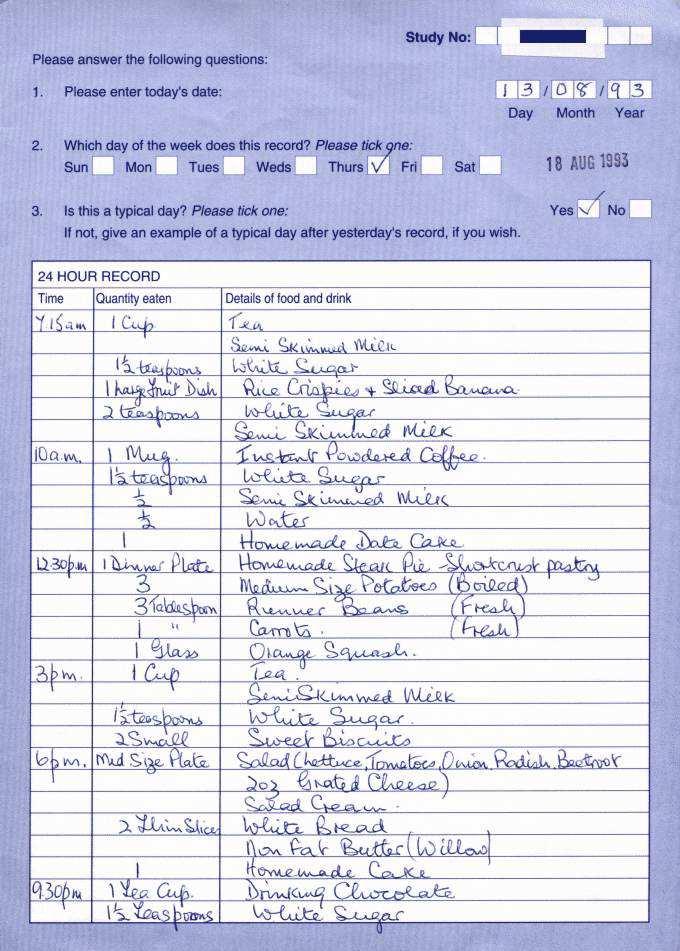 Study No:
Please answer the following questions:
1. Please enter today's date: 13/08/93
Day Month Year
2. Which day of the week does this record? Please tick one:
Sun Mon Tues Weds Thurs ✓ Fri Sat 18 AUG 1993
3. Is this a typical day? Please tick one: Yes ✓ No
If not, give an example of a typical day after yesterday's record, if you wish.
24 HOUR RECORD
Time Quantity eaten Details of food and drink
7.15am 1 Cup Tea
Semi Skimmed Milk
1½ teaspoons White Sugar
1 Large Fruit Dish Rice Crispies + Sliced Banana
2 teaspoons White Sugar
Semi Skimmed Milk
10a.m. 1 Mug. Instant Powdered Coffee.
1½ teaspoons White Sugar
½ Semi Skimmed Milk
½ Water
1 Homemade Date Cake
12.30p.m 1 Dinner Plate Homemade Steak Pie - Shortcrust pastry
3 Medium Size Potatoes (Boiled)
3 Tablespoon Runner Beans (Fresh)
1 " Carrots. (Fresh)
1 Glass Orange Squash.
3pm. 1 Cup Tea.
Semi Skimmed Milk
1½ teaspoons White Sugar.
2 Small Sweet Biscuits
6pm. Med Size Plate Salad (Lettuce, Tomatoes, Onion, Radish, Beetroot
2oz Grated Cheese)
Salad Cream.
2 Thin Slices White Bread
Non Fat Butter (Willow)
1 Homemade Cake
9.30pm 1 Tea Cup. Drinking Chocolate
1½ Teaspoons White Sugar